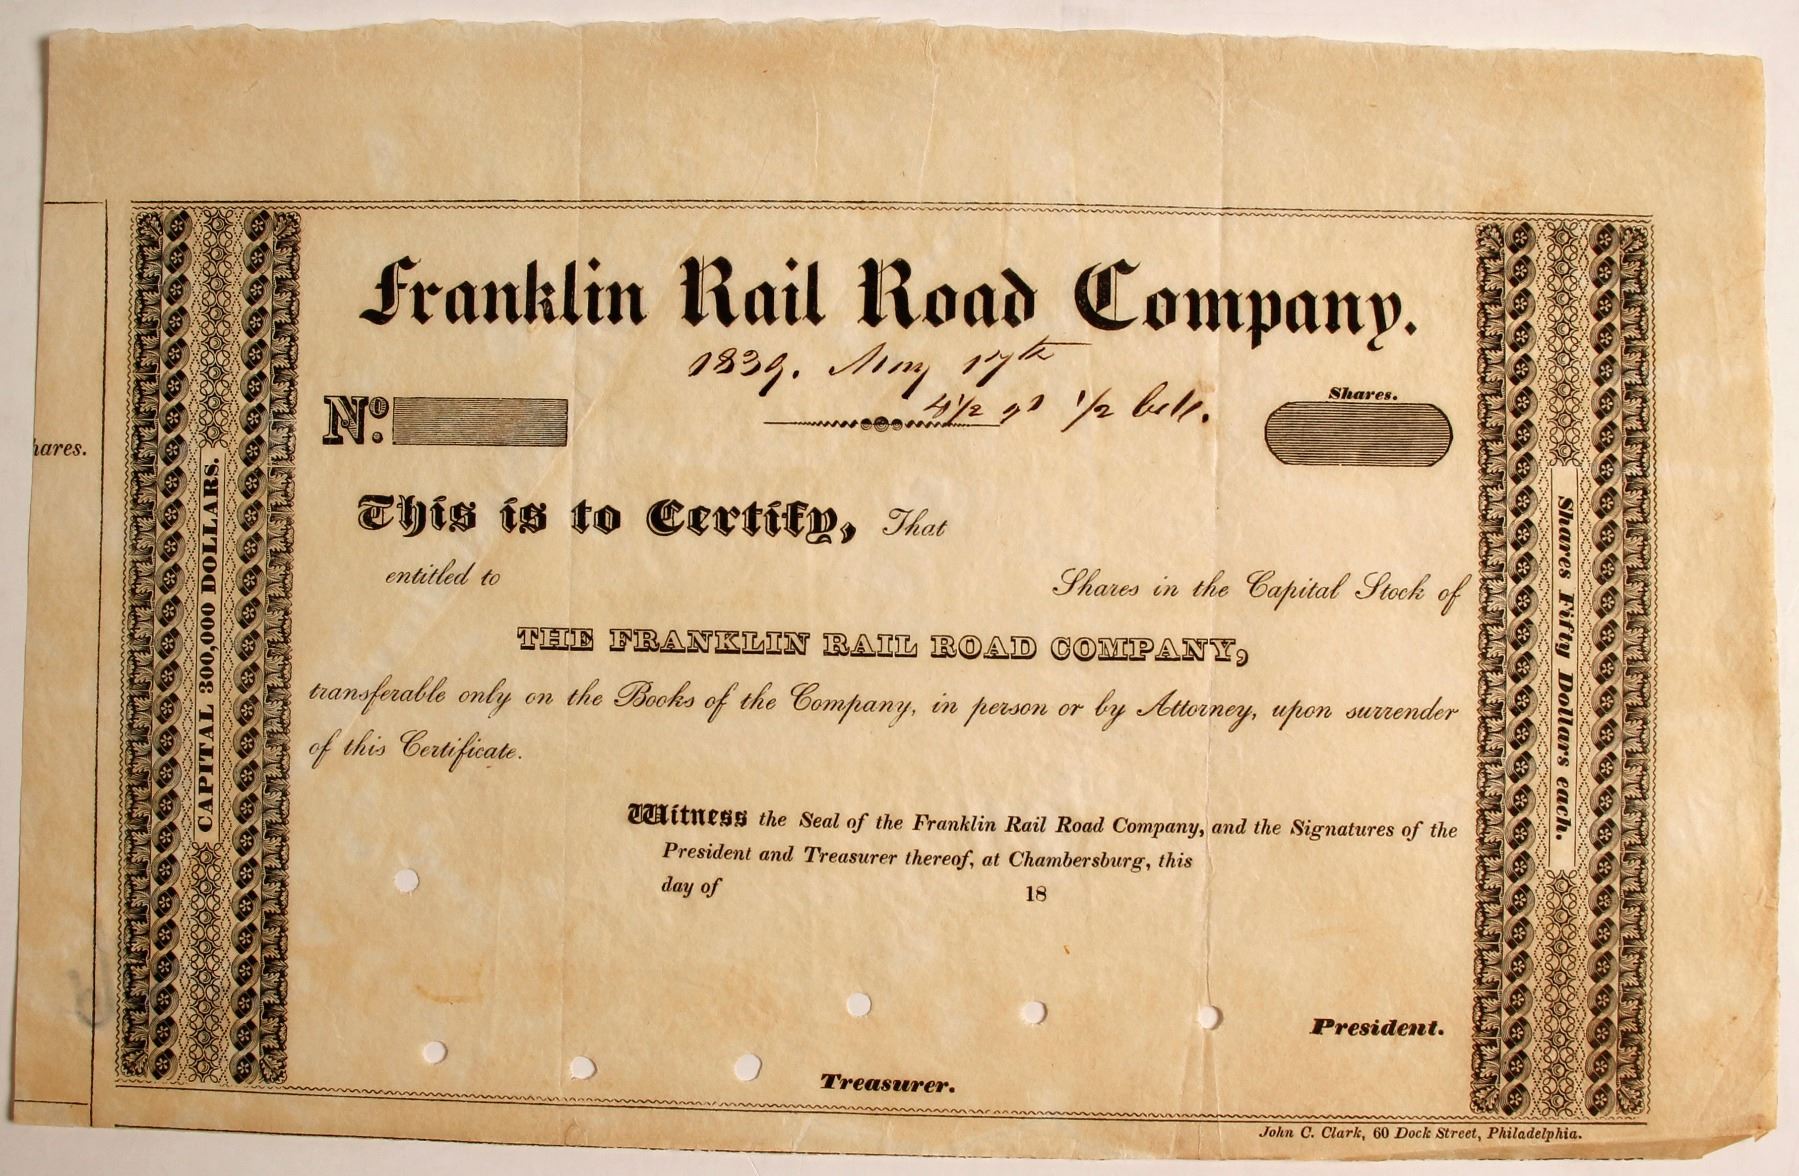 Franklin Rail Road Company.
1839. May 17th
No.
4 1/2 1/2
Shares.
hares.
This is to Certify, That
entitled to Shares in the Capital Stock of
THE FRANKLIN RAIL ROAD COMPANY,
transferable only on the Books of the Company, in person or by Attorney, upon surrender
of this Certificate.
Witness the Seal of the Franklin Rail Road Company, and the Signatures of the
President and Treasurer thereof, at Chambersburg, this
day of 18
President.
Treasurer.
CAPITAL 300,000 DOLLARS.
Shares Fifty Dollars each.
John C. Clark, 60 Dock Street, Philadelphia.